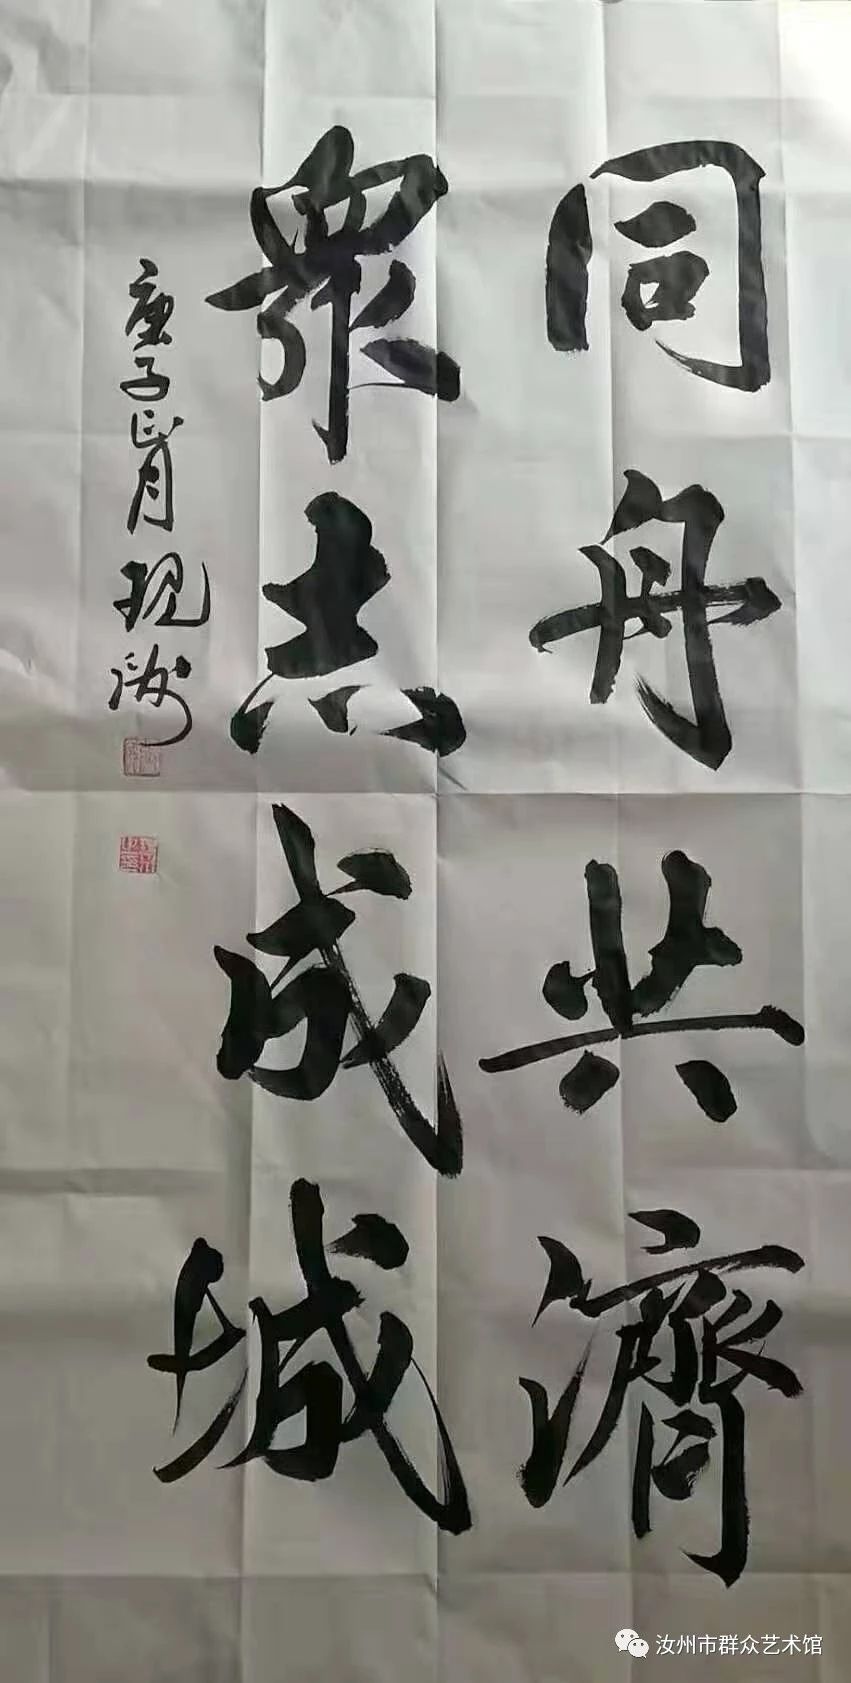 同舟共濟
眾志成城
庚子正月
汝州市群众艺术馆